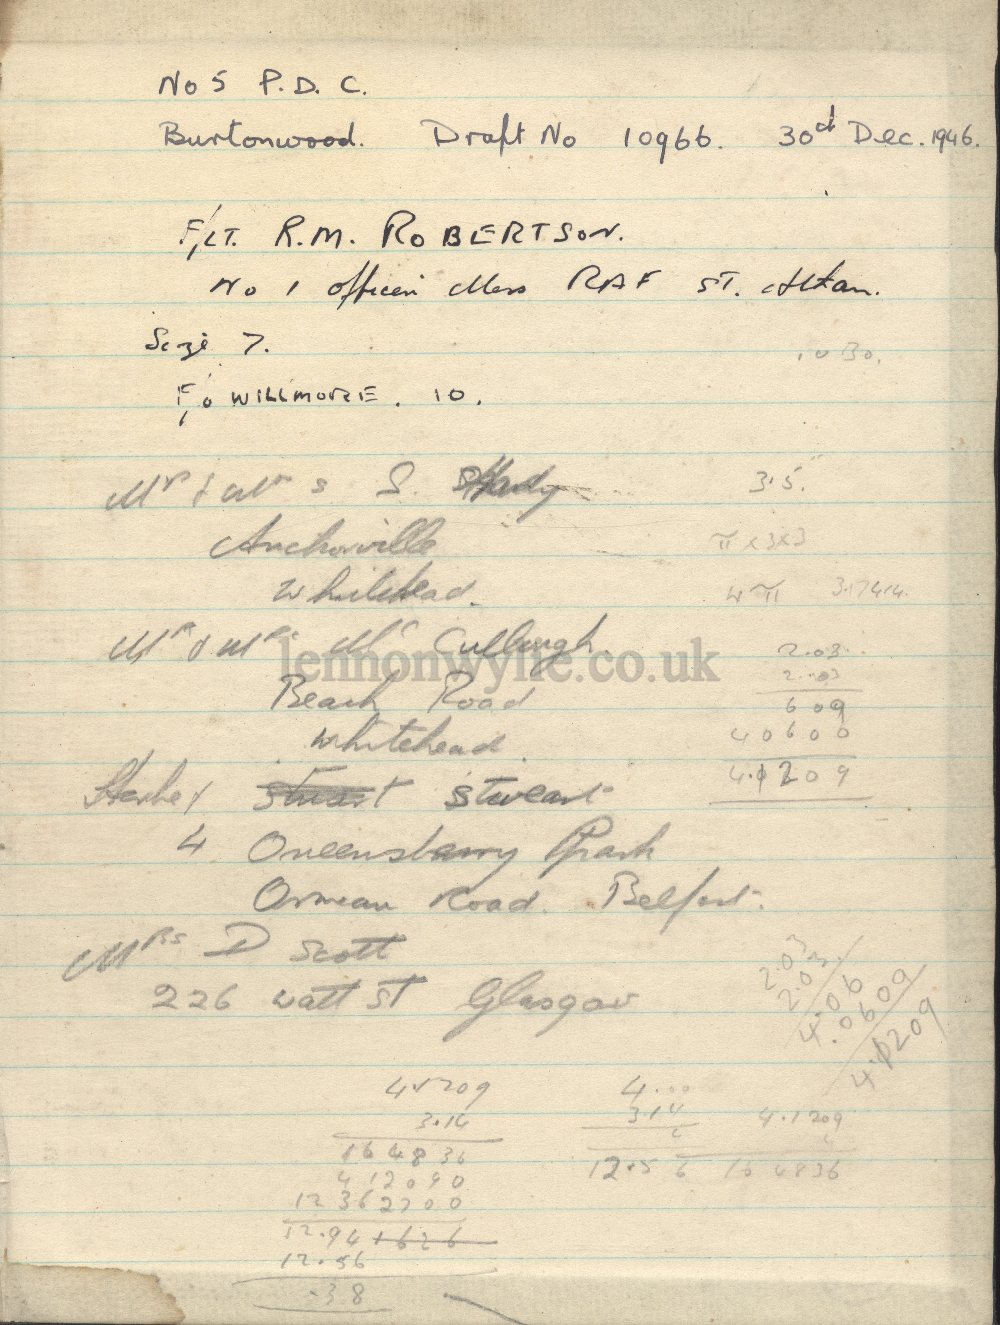 No 5 P.D.C.
Burtonwood. Draft No 10966. 30th Dec. 1946.
F/LT. R.M. ROBERTSON.
No 1 officers Mess RAF ST. Athan.
Size 7.
F/O WILLMORE. 10.
Mr & Mrs S. Hardy 3.5.
Anchorville π x 3 x 3
Whitehead. 4 π
Mr & Mrs Mc Cullough.
lennonwylie.co.uk
2.03
2.03
Beach Road 609
Whitehead 40600
4.1209
Stewart
4 Queensberry Park
Ormeau Road. Belfast.
Mrs D Scott
226 Watt St Glasgow
2.03
2.03
4.06
.0609
4.1209
4.1209 4.00
3.14 3.14 4.1209
164836
412090 12.56 164836
12362700
12.94 1626
12.56
.38